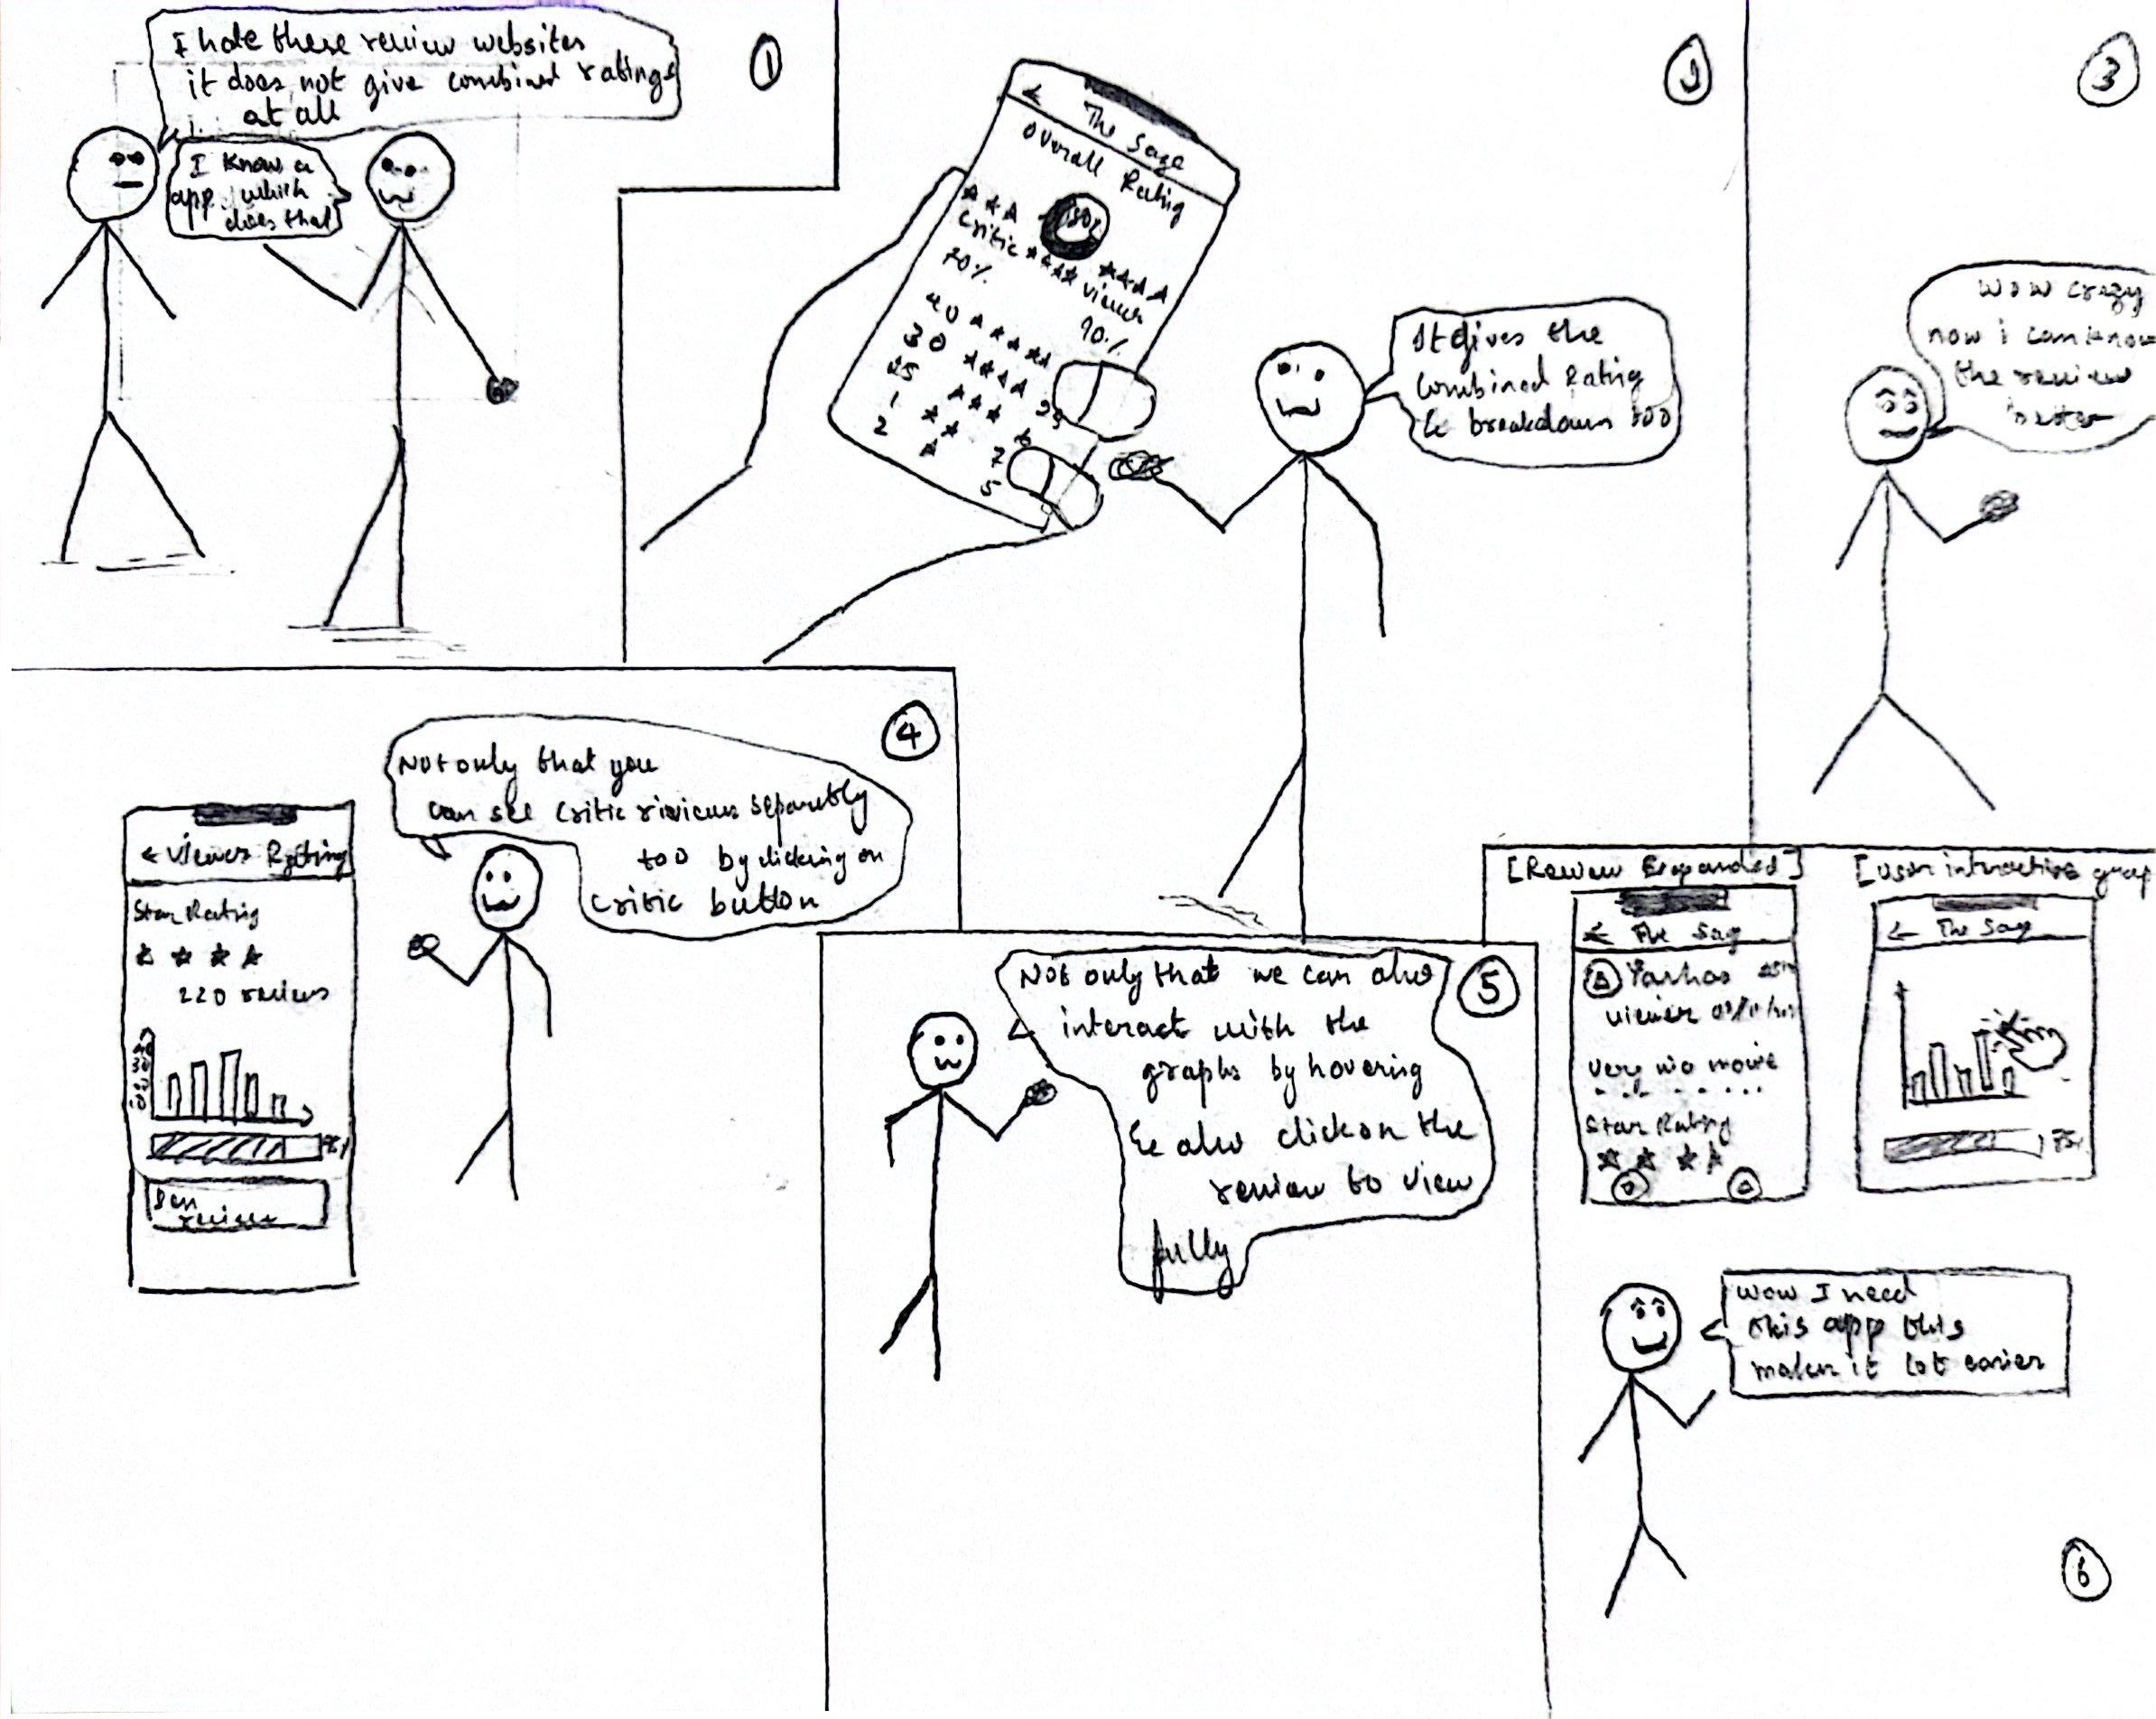 I hate these review websites
it does not give combined ratings
at all
①
I know a
app which
does that
←
The Sage
Overall Rating
80%
★★★ ★★★★
Critic ★★★★ viewer
70%
90%
40 ★★★★★
30 ★★★★ 25
25 ★★★
1 ★★ 7
2 ★ 5
It gives the
Combined Rating
& breakdown too
③
Wow crazy
now i can know
the review
better
④
Not only that you
can see critic riviews separetly
too by clicking on
critic button
← Viewer Rating
Star Rating
★ ★ ★ ★
220 reviews
40
30
20
10
75%
review
⑤
Not only that we can also
interact with the
graphs by hovering
& also click on the
review to view
fully
[Review Expanded]
← The Sag
viewer
movie
Star Rating
★ ★ ★ ★
[user interactive grap
← The Sage
75%
Wow I need
this app this
makes it lot easier
⑥